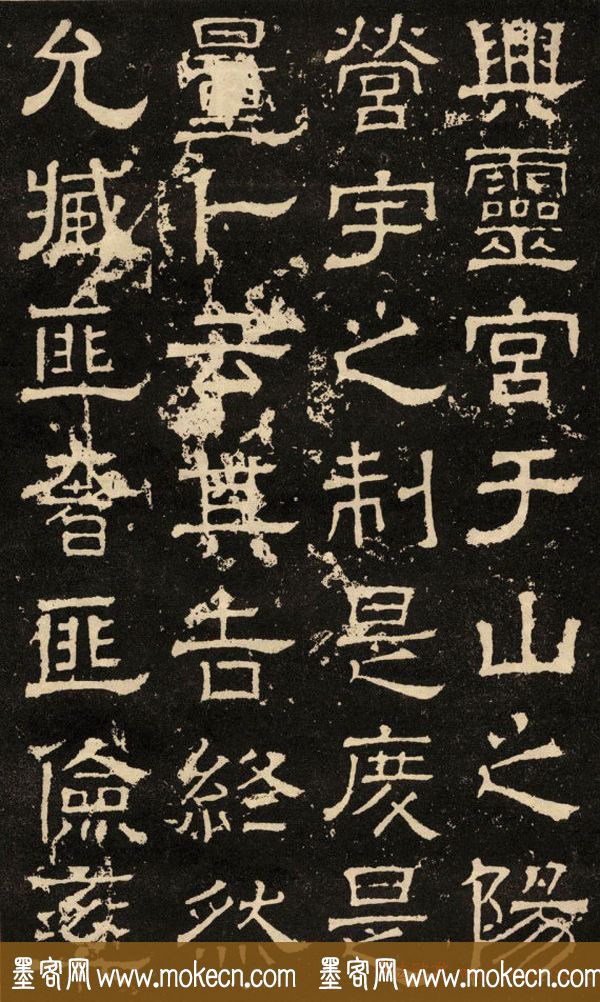 興靈宮于山之陽
營宇之制是度是
量卜云其吉終然
允臧匪奢匪儉
墨客网 www.mokecn.com 墨客网 www.mokecn.com